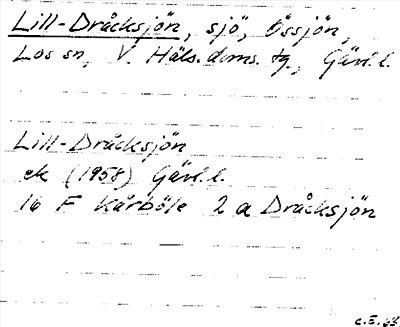 Lill-Dråcksjön, sjö, Össjön,
Los sn, V. Häls. doms. tg., Gävl. l.
Lill-Dråcksjön
ek (1958) Gävl. l.
16 F Kårböle 2 a Dråcksjön
C.E. 63